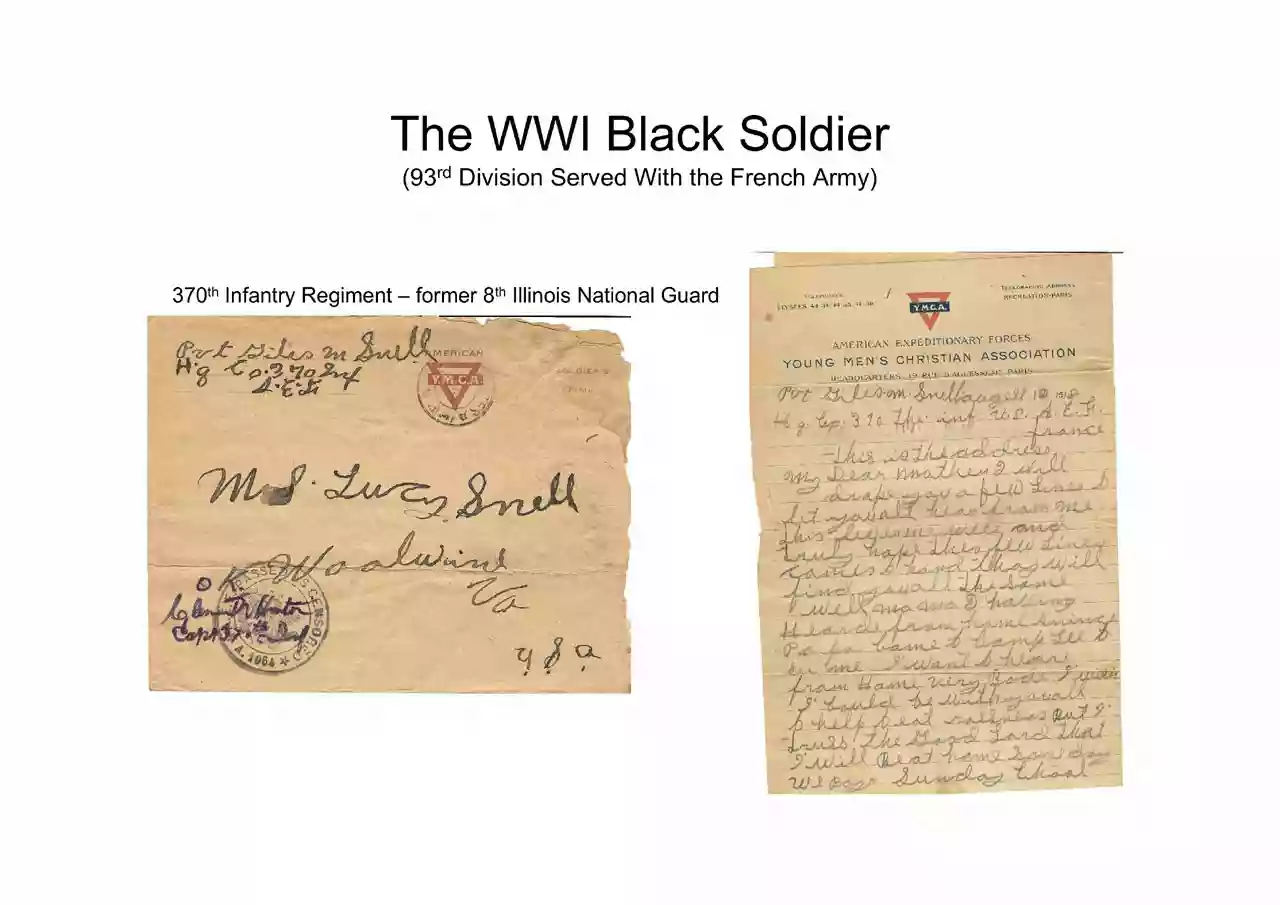 The WWI Black Soldier
(93rd Division Served With the French Army)
370th Infantry Regiment – former 8th Illinois National Guard
Pvt Giles M Snell
Hq Co. 370 Inf
A.E.F
AMERICAN
Y.M.C.A.
SOLDIER'S
Mrs. Lucy Snell
Woolwine
Va
U.S.a
O K
Capt 370 Inf
PASSED AS CENSORED
A. 1964
TELEGRAPHIC ADDRESS
RECREATION-PARIS
Y.M.C.A.
AMERICAN EXPEDITIONARY FORCES
YOUNG MEN'S CHRISTIAN ASSOCIATION
HEADQUARTERS, RUE D'AGUESSEAU PARIS
Pvt Giles M. Snell 1918
Hq. Co. 370 inf U.S. A.E.F.
france
This is the address
My Dear mother I will
drape you a few lines to
let youall hear from me
this leaves me well and
truly hope thes few lines
Comes to hand thay will
find youall the same
Well mama I
hearde from home since
Pa pa Came to Camp Lee to
see me I want to hear
from Home very bade I wish
I Could be with youall
to help eat But I
truss the Good Lord that
I will Be at home Some day
We Sunday